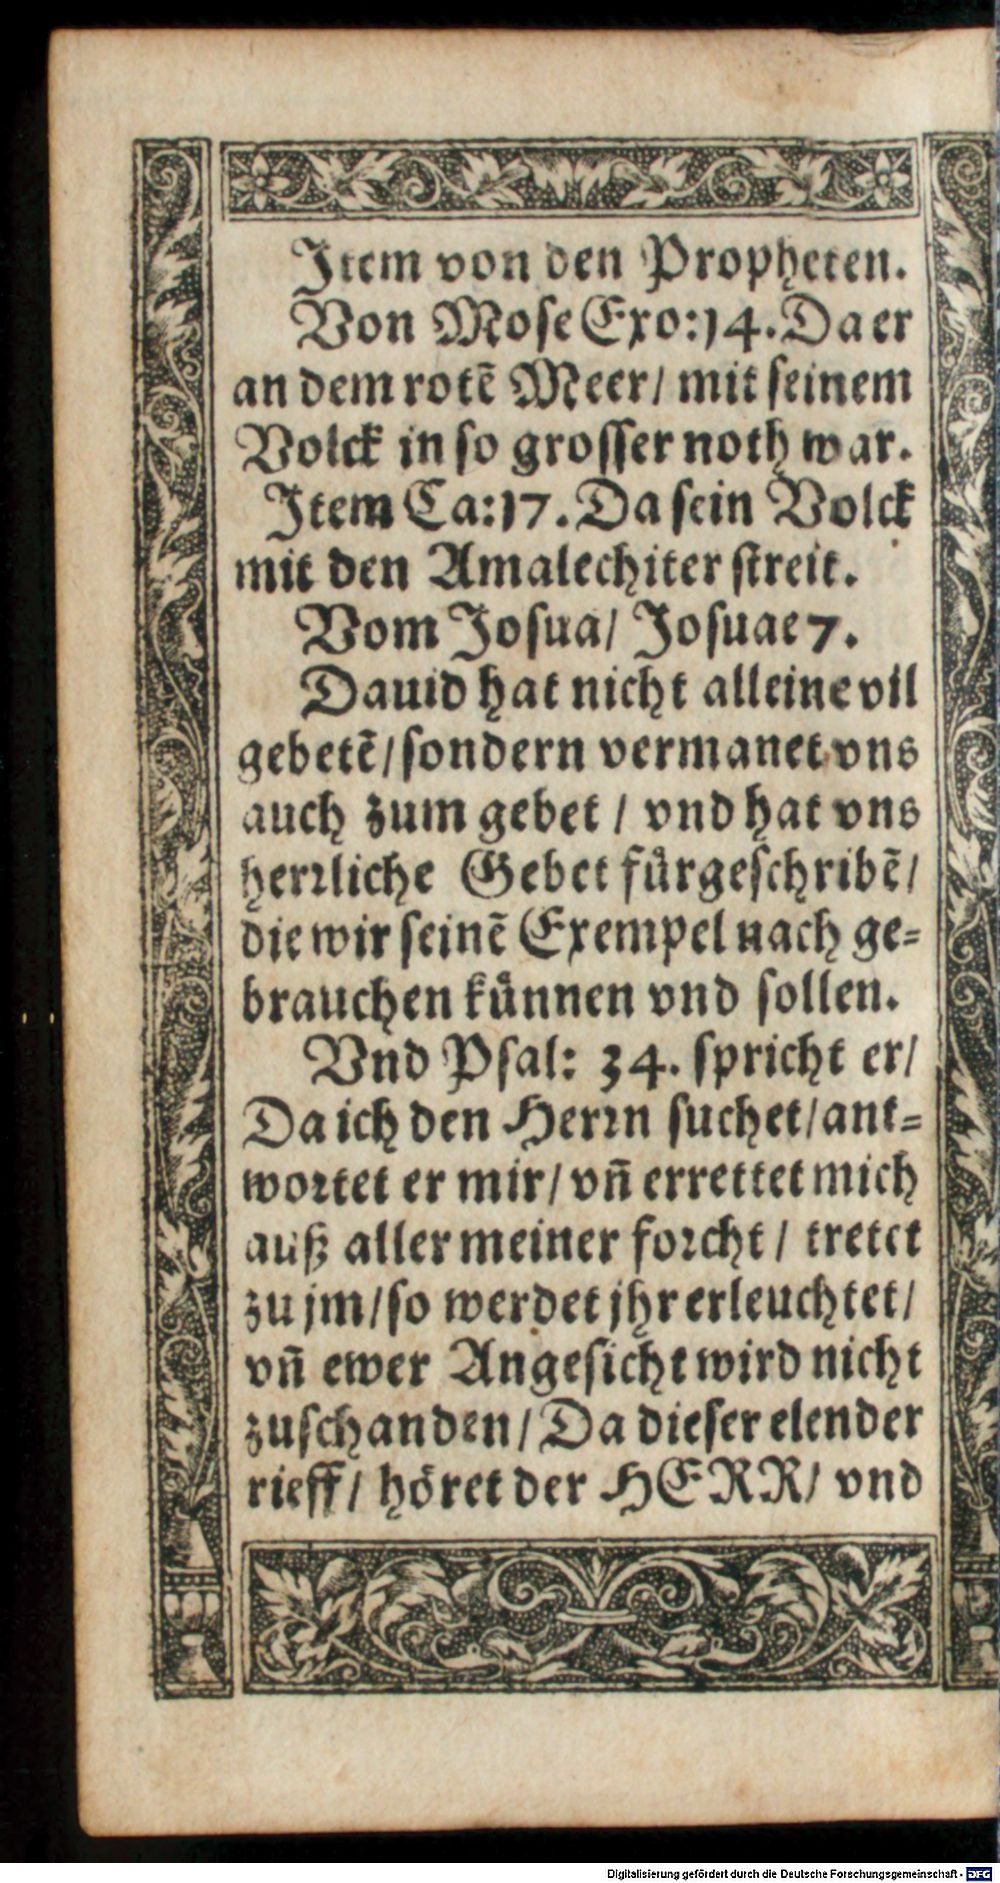 Item von den Propheten.
Von Mose Exo:14. Da er
an dem rotē Meer/ mit seinem
Volck in so grosser noth war.
Item Ca:17. Da sein Volck
mit den Amalechiter streit.
Vom Josua/ Josuae 7.
Dauid hat nicht alleine vil
gebetē/ sondern vermanet vns
auch zum gebet / vnd hat vns
herrliche Gebet fuͤrgeschribē/
die wir seinē Exempel nach ge-
brauchen kuͤnnen vnd sollen.
Vnd Psal: 34. spricht er/
Da ich den Herrn suchet/ ant-
wortet er mir/ vn̄ errettet mich
auß aller meiner forcht / tretet
zu jm/ so werdet jhr erleuchtet/
vn̄ ewer Angesicht wird nicht
zuschanden/ Da dieser elender
rieff/ hoͤret der HERR/ vnd
Digitalisierung gefördert durch die Deutsche Forschungsgemeinschaft - DFG